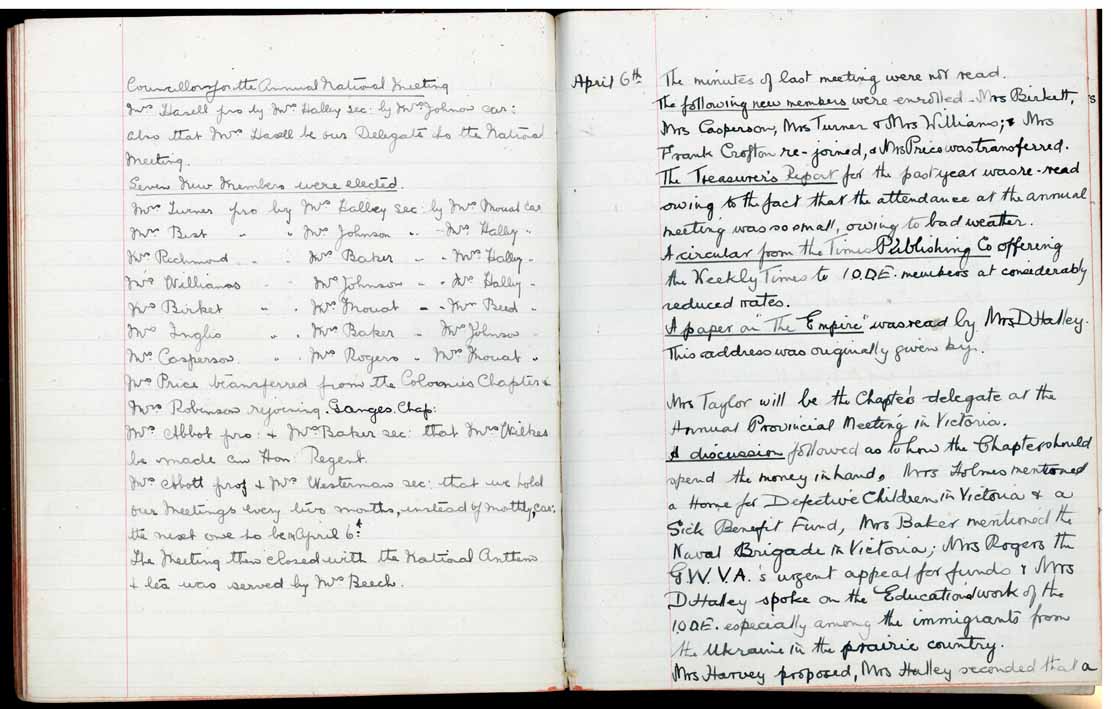 Councillors for the Annual National Meeting
Mrs Hasell pro by Mrs Halley sec: by Mrs Johnson car:
also that Mrs Hasell be our Delegate to the National
Meeting.
Seven New Members were elected.
Mrs Turner pro by Mrs Halley sec: by Mrs Mouat car
Mrs Best " " Mrs Johnson " " Mrs Halley "
Mrs Richmond " " Mrs Baker " " Mrs Halley "
Mrs Williams " " Mrs Johnson " " Mrs Halley "
Mrs Birket " " Mrs Mouat " " Mrs Beed "
Mrs Inglis " " Mrs Baker " Mrs Johnson "
Mrs Casperson " " Mrs Rogers " Mrs Mouat "
Mrs Price transferred from the Colonies Chapter &
Mrs Robinson rejoining. Ganges Chap:
Mrs Abbot pro: & Mrs Baker sec: that Mrs Wilkes
be made an Hon: Regent.
Mrs Abbott prof & Mrs Westerman sec: that we hold
our Meetings every two months, instead of mothly, car:
the next one to be April 6th
The Meeting then closed with the National Anthem
& tea was served by Mrs Beech.
April 6th The minutes of last meeting were not read.
The following new members were enrolled - Mrs Birkett,
Mrs Casperson, Mrs Turner & Mrs Williams; & Mrs
Frank Crofton re-joined, & Mrs Price was transferred.
The Treasurer's Report for the past year was re-read
owing to the fact that the attendance at the annual
meeting was so small, owing to bad weather.
A circular from the Times Publishing Co offering
the Weekly Times to I.O.D.E. members at considerably
reduced rates.
A paper on "The Empire" was read by Mrs D Halley.
This address was originally given by.
Mrs Taylor will be the Chapter's delegate at the
Annual Provincial Meeting in Victoria.
A discussion followed as to how the Chapter should
spend the money in hand. Mrs Holmes mentioned
a Home for Defective Children in Victoria & a
Sick Benefit Fund, Mrs Baker mentioned the
Naval Brigade in Victoria; Mrs Rogers the
G.W.V.A.'s urgent appeal for funds & Mrs
D Halley spoke on the Education work of the
I.O.D.E. especially among the immigrants from
the Ukraine in the prairie country.
Mrs Harvey proposed, Mrs Halley seconded that a